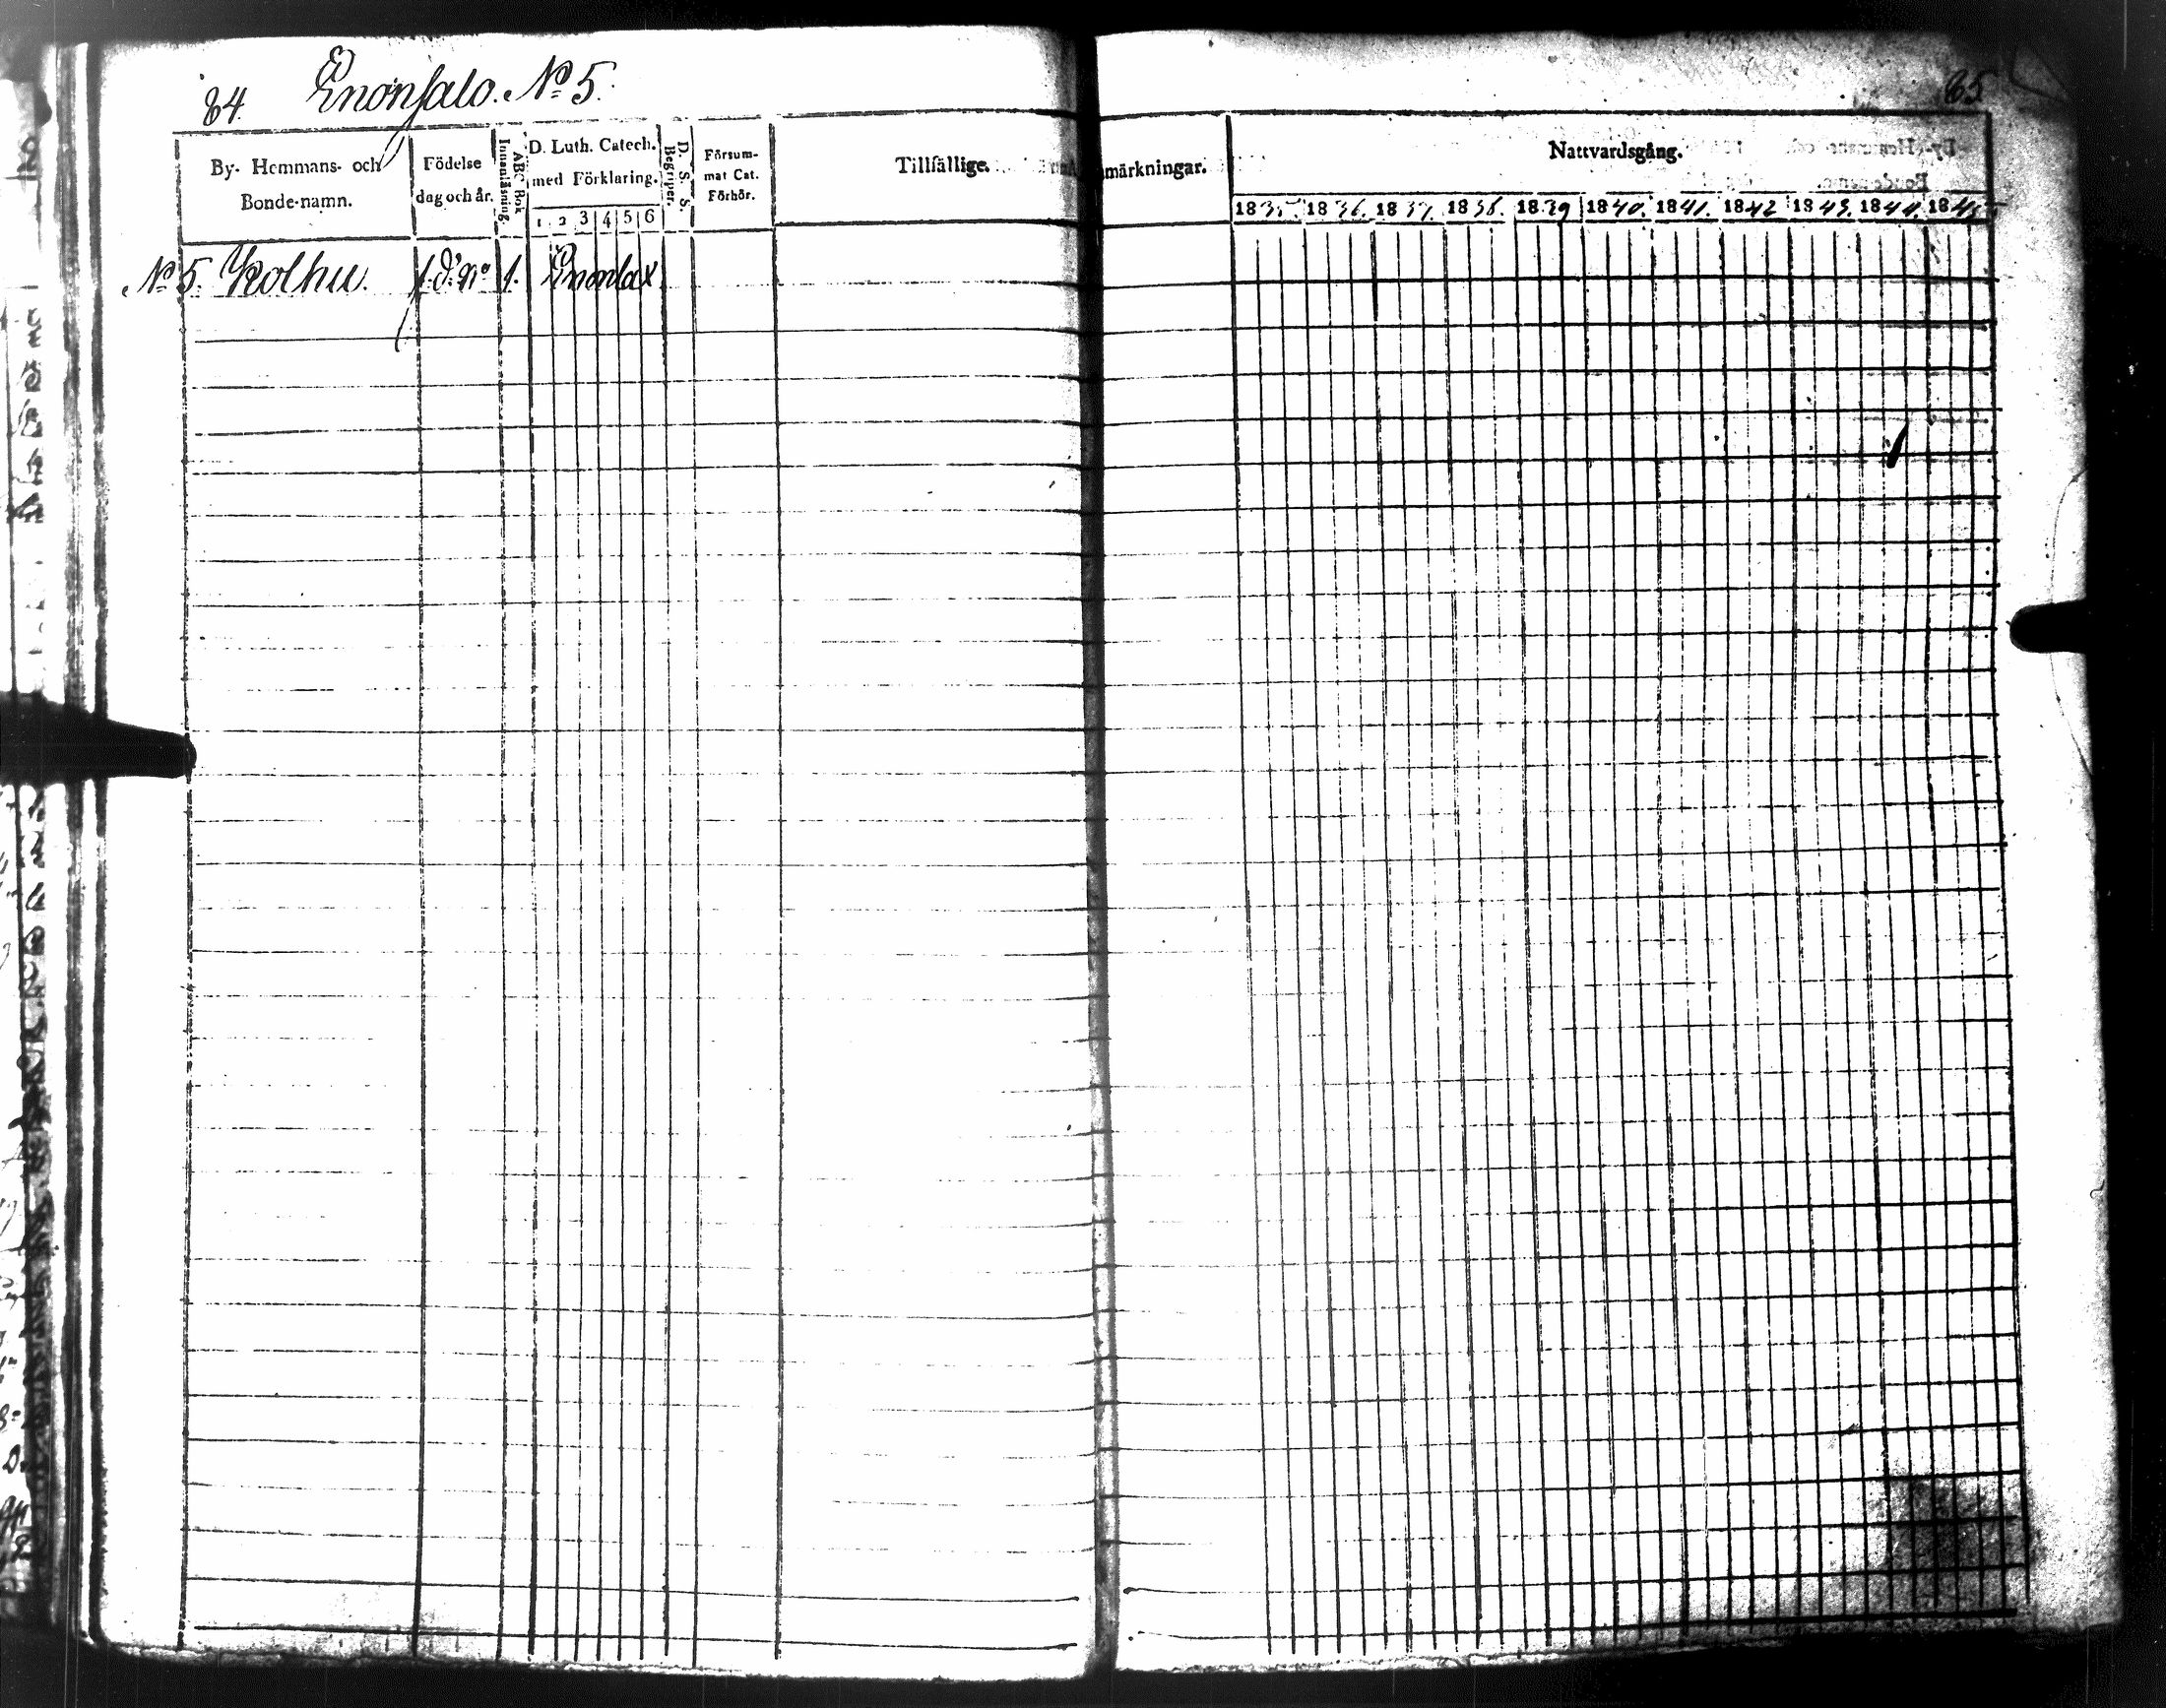 84. Enonsalo. No 5.
85
By- Hemmans- och Bonde-namn.
Födelse dag och år.
ABC Bok Innanläsning.
D. Luth. Catech. med Förklaring.
1 2 3 4 5 6
D. S. S. Begriper.
Försum-mat Cat. Förhör.
Tillfällige Anmärkningar.
Nattvardsgång.
1835. 1836. 1837. 1838. 1839 1840. 1841. 1842 1843. 1844. 1845
No 5. Kolhu. f. d. No 1. Enonlax